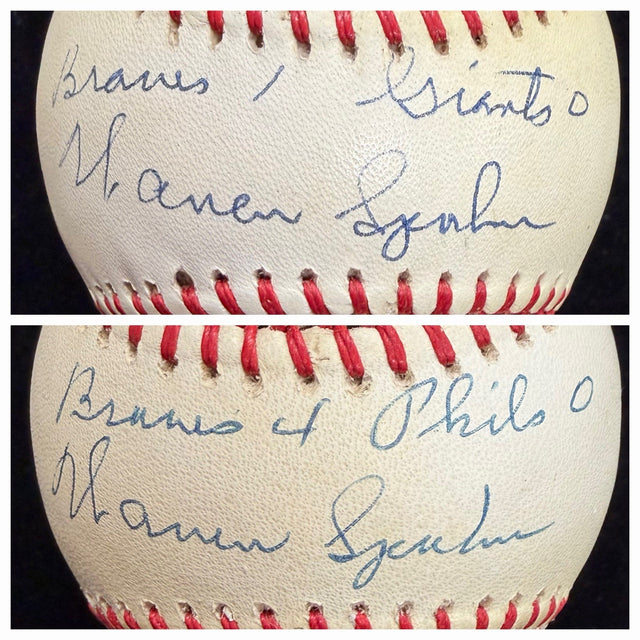 Braves 1 Giants 0
Warren Spahn
Braves 4 Phils 0
Warren Spahn